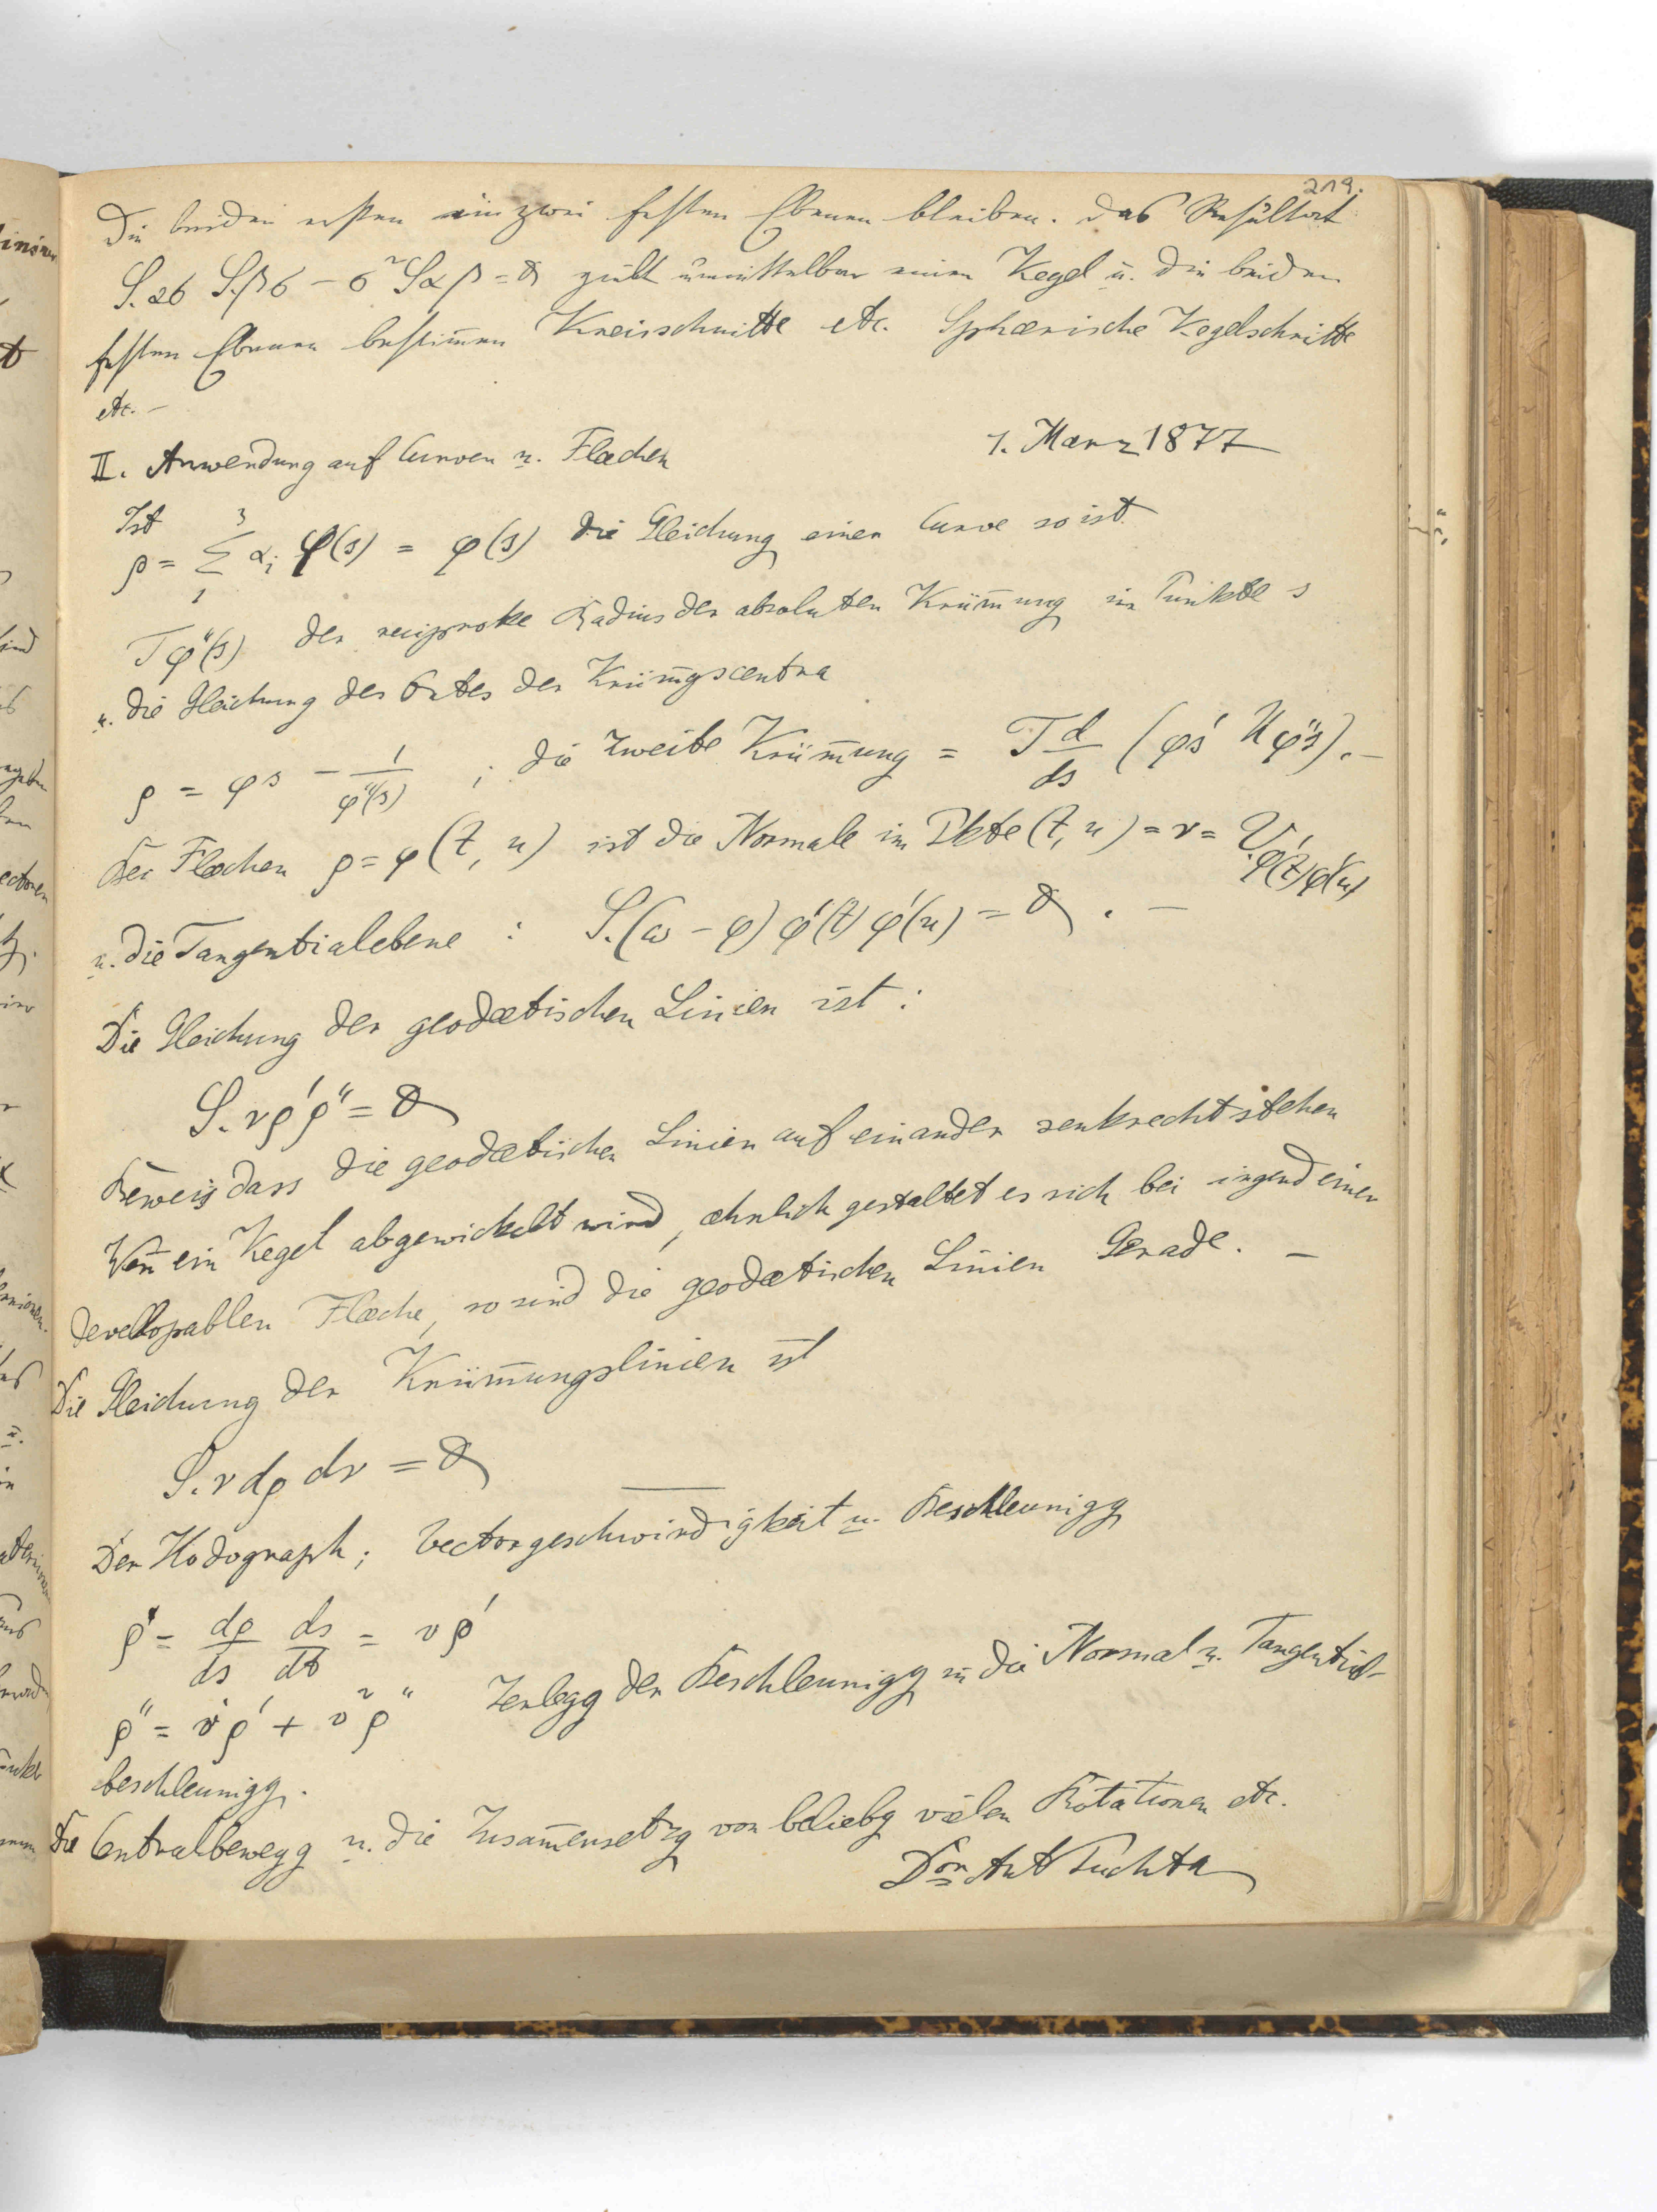 219.
die beiden ersten in zwei festen Ebenen bleiben. Das Resultat
S.ασ S.βσ − σ² Sαβ = 0 gibt unmittelbar einen Kegel u. die beiden
festen Ebenen bestim̅en Kreisschnitte etc. Sphærische Kegelschnitte
etc. –
II. Anwendung auf Curven u. Flæchen 1. Mærz 1877
Ist
ρ = Σ₁³ αᵢ φ(s) = φ(s) die Gleichung einer Curve so ist
Tφ″(s) der reciproke Radius der absoluten Krüm̅ung im Punkte s
u. die Gleichung des Ortes der Krüm̅gscentra
ρ = φs − 1/φ″(s) ; die zweite Krüm̅ung = T d/ds (φ′s Uφ″s). –
Bei Flæchen ρ = φ(t, u) ist die Normale im Pkte (t, u) = ν = V.φ′(t)φ′(u)
u. die Tangentialebene : S.(ω − φ) φ′(t) φ′(u) = 0 . –
Die Gleichung der geodætischen Linien ist :
S.νρ′ρ″ = 0
Beweis dass die geodætischen Linien auf einander senkrecht stehen
Wen̅ ein Kegel abgewickelt wird, æhnlich gestaltet es sich bei irgend einer
developpablen Flæche, so sind die geodætischen Linien Gerade. –
Die Gleichung der Krüm̅ungslinien ist
S.ν dρ dν = 0
Der Hodograph; Vectorgeschwindigkeit u. Beschleunigg
ρ̇ = dρ/ds ds/dt = vρ′
ρ̈ = v̇ρ′ + v²ρ″ Zerlegg der Beschleunigg in die Normal u. Tangential-
beschleunigg.
Die Centralbewegg u. die Zusam̅ensetzg von beliebg vielen Rotationen etc.
Dor Ant Puchta